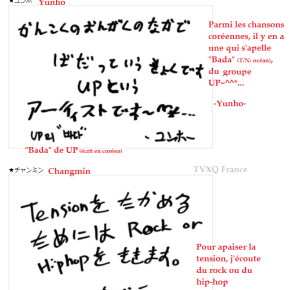 ★ユンホ Yunho
かんこくのおんがくのなかで
ばだっていうきょくです
UPという
アーティストです~♥...
UP의 "바다"
- ユンホ~
Parmi les chansons
coréennes, il y en a
une qui s'apelle
"Bada" (T/N: océan),
du groupe
UP~^^*...
-Yunho-
"Bada" de UP (écrit en coréen)
★チャンミン Changmin
TVXQ France
Tensionを たかめる
ためには Rock or
Hiphopを ききます。
Pour apaiser la
tension, j'écoute
du rock ou du
hip-hop